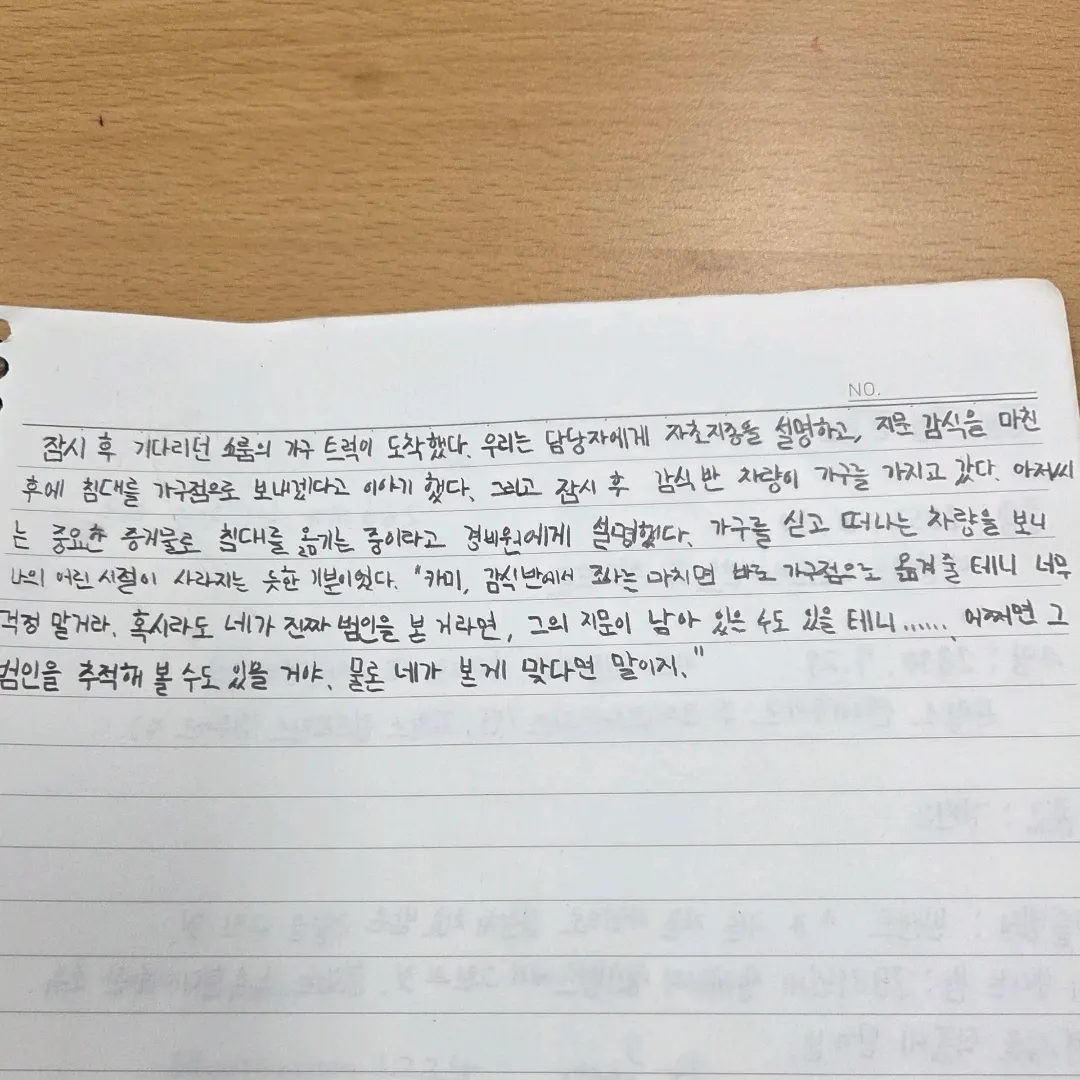 NO.
잠시 후 기다리던 쇼룸의 가구 트럭이 도착했다. 우리는 담당자에게 자초지종을 설명하고, 지문 감식을 마친
후에 침대를 가구점으로 보내겠다고 이야기 했다. 그리고 잠시 후 감식반 차량이 가구를 가지고 갔다. 아저씨
는 중요한 증거물로 침대를 옮기는 중이라고 경비원에게 설명했다. 가구를 싣고 떠나는 차량을 보니
나의 어린 시절이 사라지는 듯한 기분이었다. "카미, 감식반에서 조사를 마치면 바로 가구점으로 옮겨 줄 테니 너무
걱정 말거라. 혹시라도 네가 진짜 범인을 본 거라면, 그의 지문이 남아 있을 수도 있을 테니...... 어쩌면 그
범인을 추적해 볼 수도 있을 거야. 물론 네가 본게 맞다면 말이지."